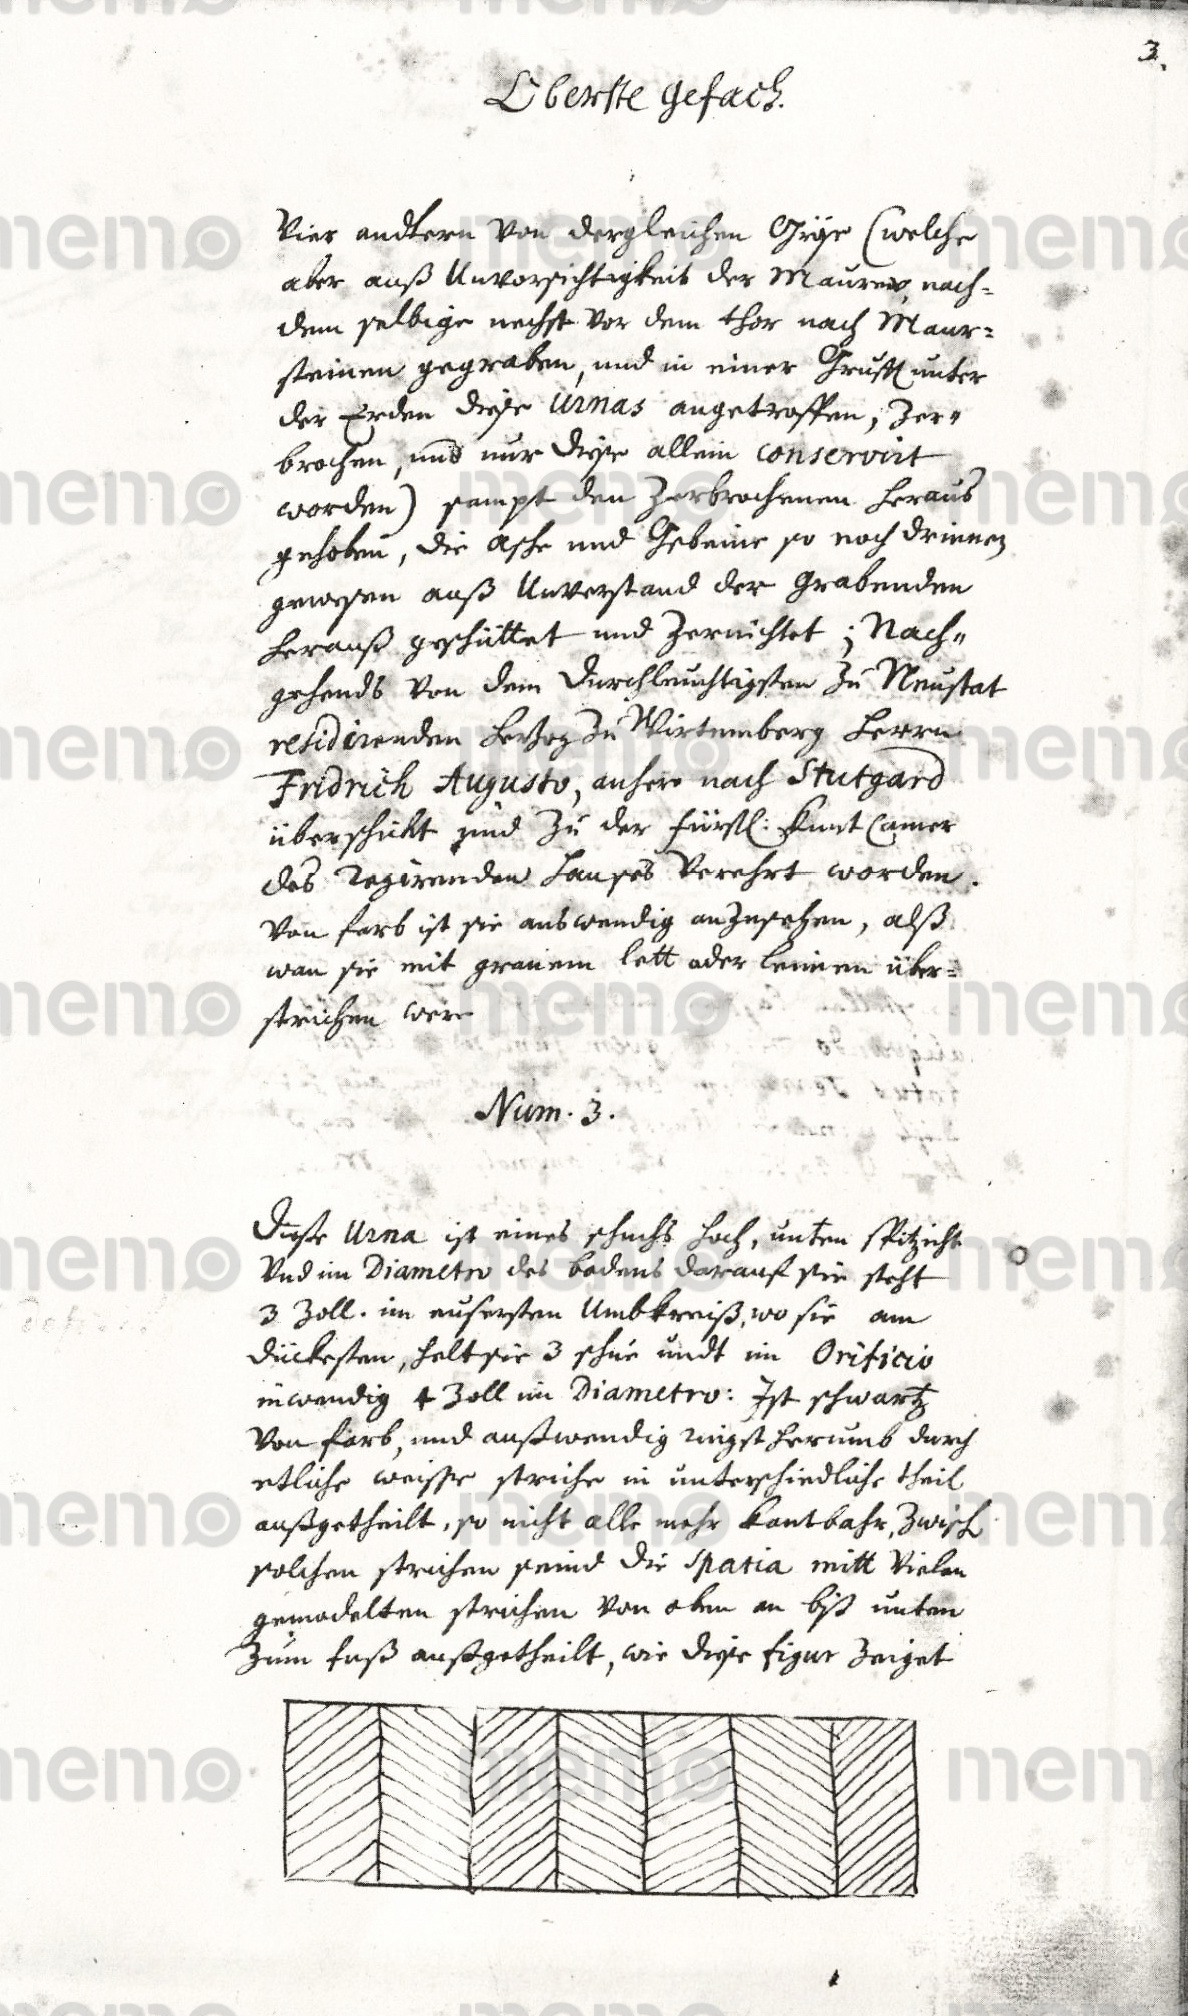 3.
Oberste gefach.
Vier andtern von dergleichen Größe (welche
aber auß Unvorsichtigkeit der Maurer, nach=
dem selbige nechst vor dem thor nach Maur=
steinen gegraben, und in einer Grufft unter
der Erden diese Urnas angetroffen, zer=
brochen, und nur diese allein conservirt
worden) sampt den zerbrochenen heraus
gehoben, die Asche und Gebeine so noch drinnen
gewesen auß Unverstand der Grabenden
herauß geschüttet und zernichtet; Nach=
gehends von dem Durchleuchtigsten zu Neustat
residirenden Herzog zu Wirtemberg Herrn
Fridrich Augusto, anhero nach Stutgard
überschikt und zu der fürstl: Kunst Camer
des Regirenden Hauses verehrt worden.
von farb ist sie auswendig anzusehen, alß
wan sie mit grauem lett oder leimen über=
strichen were
Num. 3.
Diese Urna ist eines schuchs hoch, unten spitzicht
Und im Diametro des bodens darauf sie steht
3 Zoll. im eusersten Umbkreiß, wo sie am
dückesten, helt sie 3 schue undt im Orificio
inwendig 4 Zoll im Diametro: Ist schwartz
von farb, und außwendig ringst herumb durch
etliche weisse striche in unterschiedliche theil
außgetheilt, so nicht alle mehr kantbahr, Zwisch
solchen strichen seind die spatia mitt vielen
gemodelten strichen von oben an biß unten
zum fuß außgetheilt, wie diese figur zeiget
memo